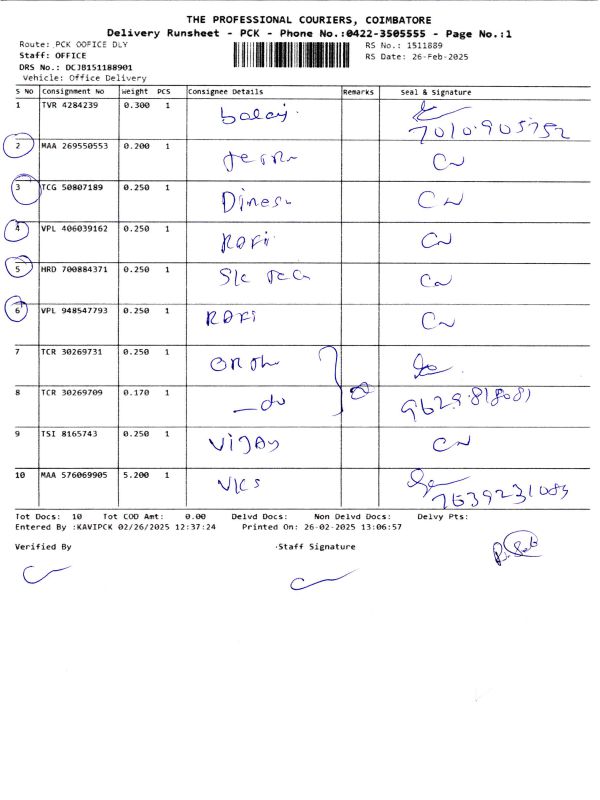 THE PROFESSIONAL COURIERS, COIMBATORE
Delivery Runsheet - PCK - Phone No.:0422-3505555 - Page No.:1
Route: PCK OOFICE DLY RS No.: 1511889
Staff: OFFICE RS Date: 26-Feb-2025
DRS No.: DCJB151188901
Vehicle: Office Delivery
S No Consignment No Weight PCS Consignee Details Remarks Seal & Signature
1 TVR 4284239 0.300 1 balaji
7010905752
2 MAA 269550553 0.200 1
3 TCG 50807189 0.250 1 Dinesh
4 VPL 406039162 0.250 1 RAFi
5 HRD 700884371 0.250 1
6 VPL 948547793 0.250 1 RAFi
7 TCR 30269731 0.250 1
8 TCR 30269709 0.170 1 -do 9629818081
9 TSI 8165743 0.250 1 VIJAY
10 MAA 576069905 5.200 1
7639231083
Tot Docs: 10 Tot COD Amt: 0.00 Delvd Docs: Non Delvd Docs: Delvy Pts:
Entered By :KAVIPCK 02/26/2025 12:37:24 Printed On: 26-02-2025 13:06:57
Verified By Staff Signature